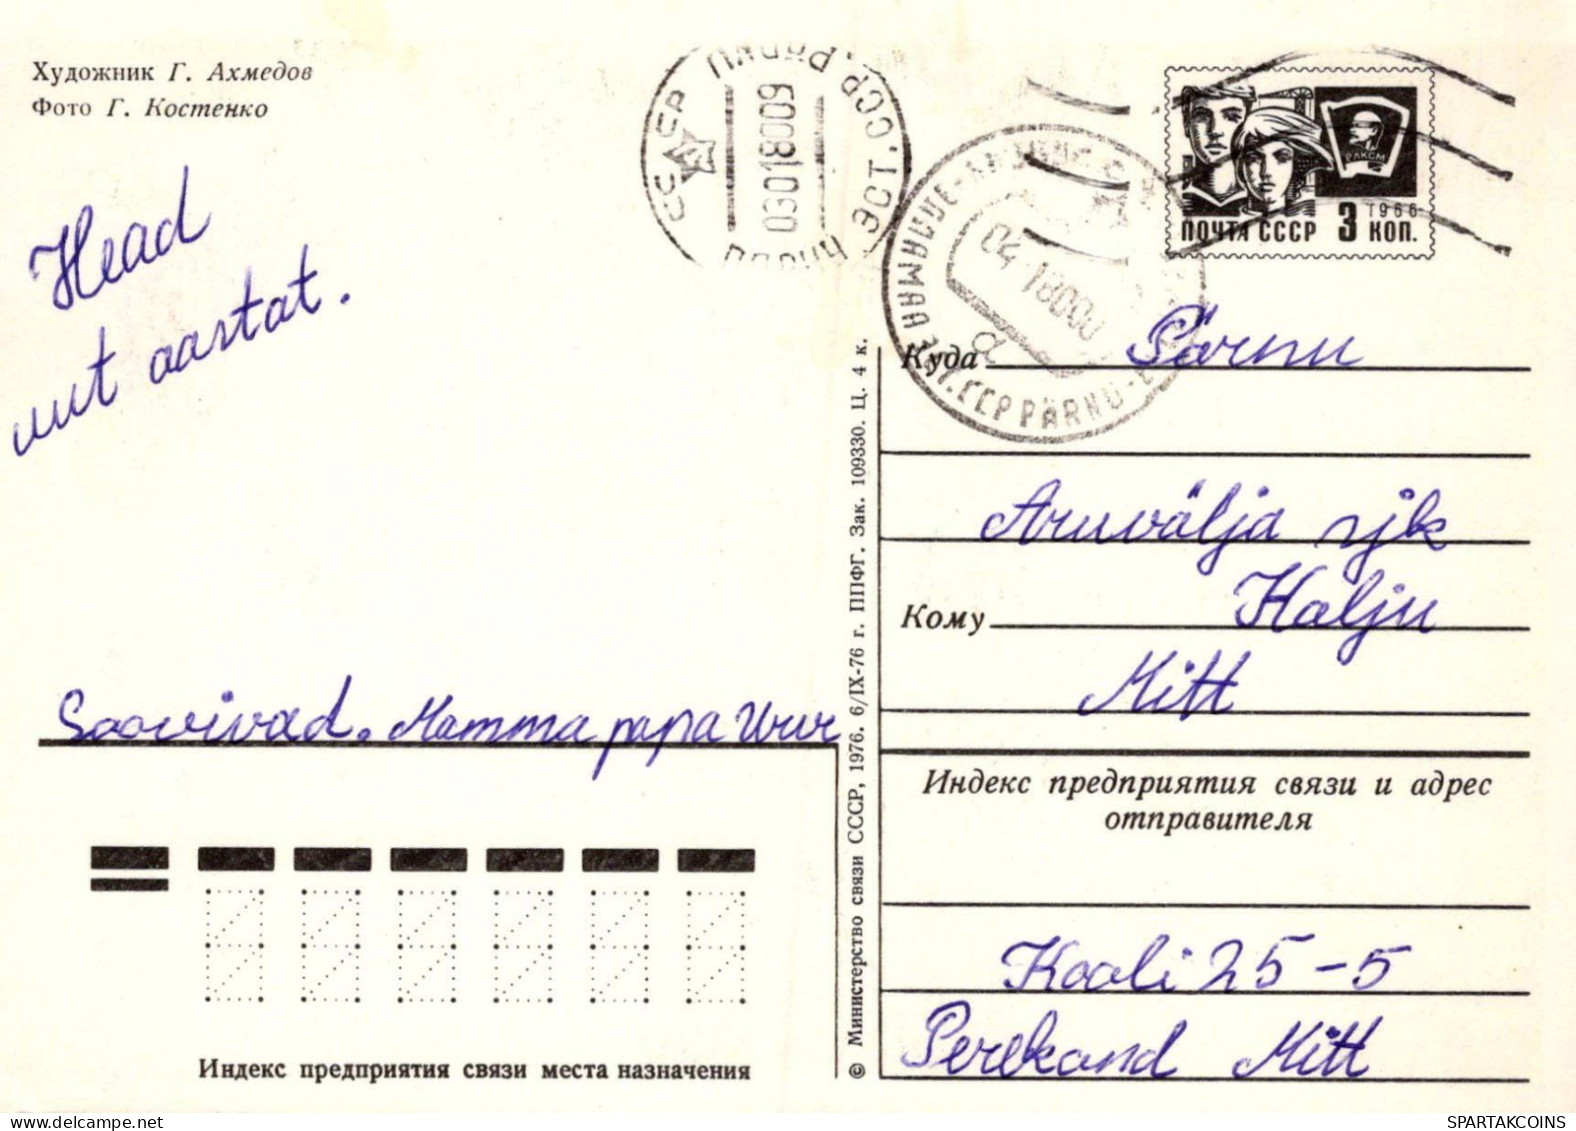 Художник Г. Ахмедов
Фото Г. Костенко
Head
uut aastat.
Soovivad. Mamma papa Urve
Индекс предприятия связи места назначения
© Министерство связи СССР, 1976. 6/IX-76 г. ППФГ. Зак. 109330. Ц. 4 к.
СССР
ЭСТ. ССР. PÄRNU
ПЯРНУ
030180009
0418000
ЭСТ. ССР PÄRNU
РЛКСМ
1966
ПОЧТА СССР 3 КОП.
Куда Pärnu
Aruvälja sjk
Кому Halju
Mitt
Индекс предприятия связи и адрес
отправителя
Kooli 25-5
Perekond Mitt
SPARTAKCOINS